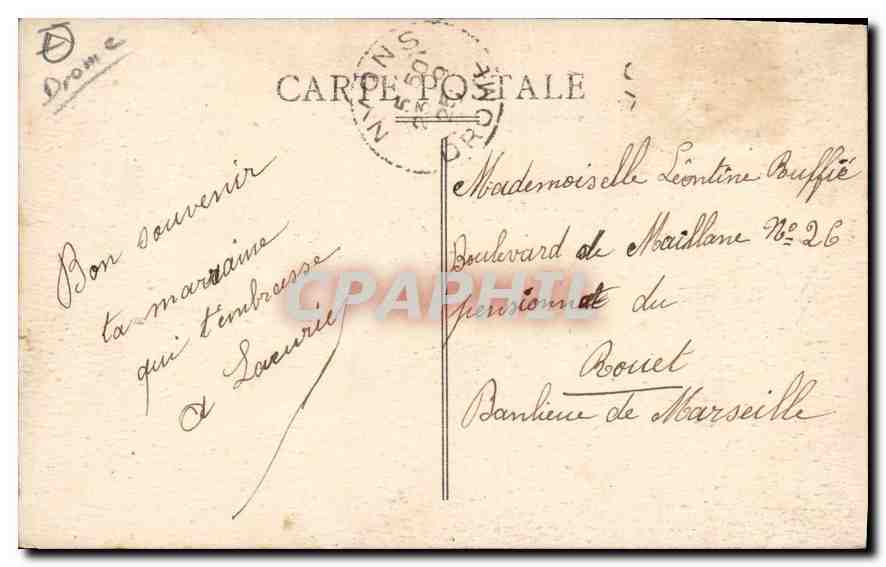 Drome
CARTE POSTALE
NYONS
DROME
Bon souvenir
ta marraine
qui t'embrasse
Mademoiselle Léontine Buffié
Boulevard de Maillane No 26
pensionnat du
Rouet
Banlieue de Marseille
CPAPHIL